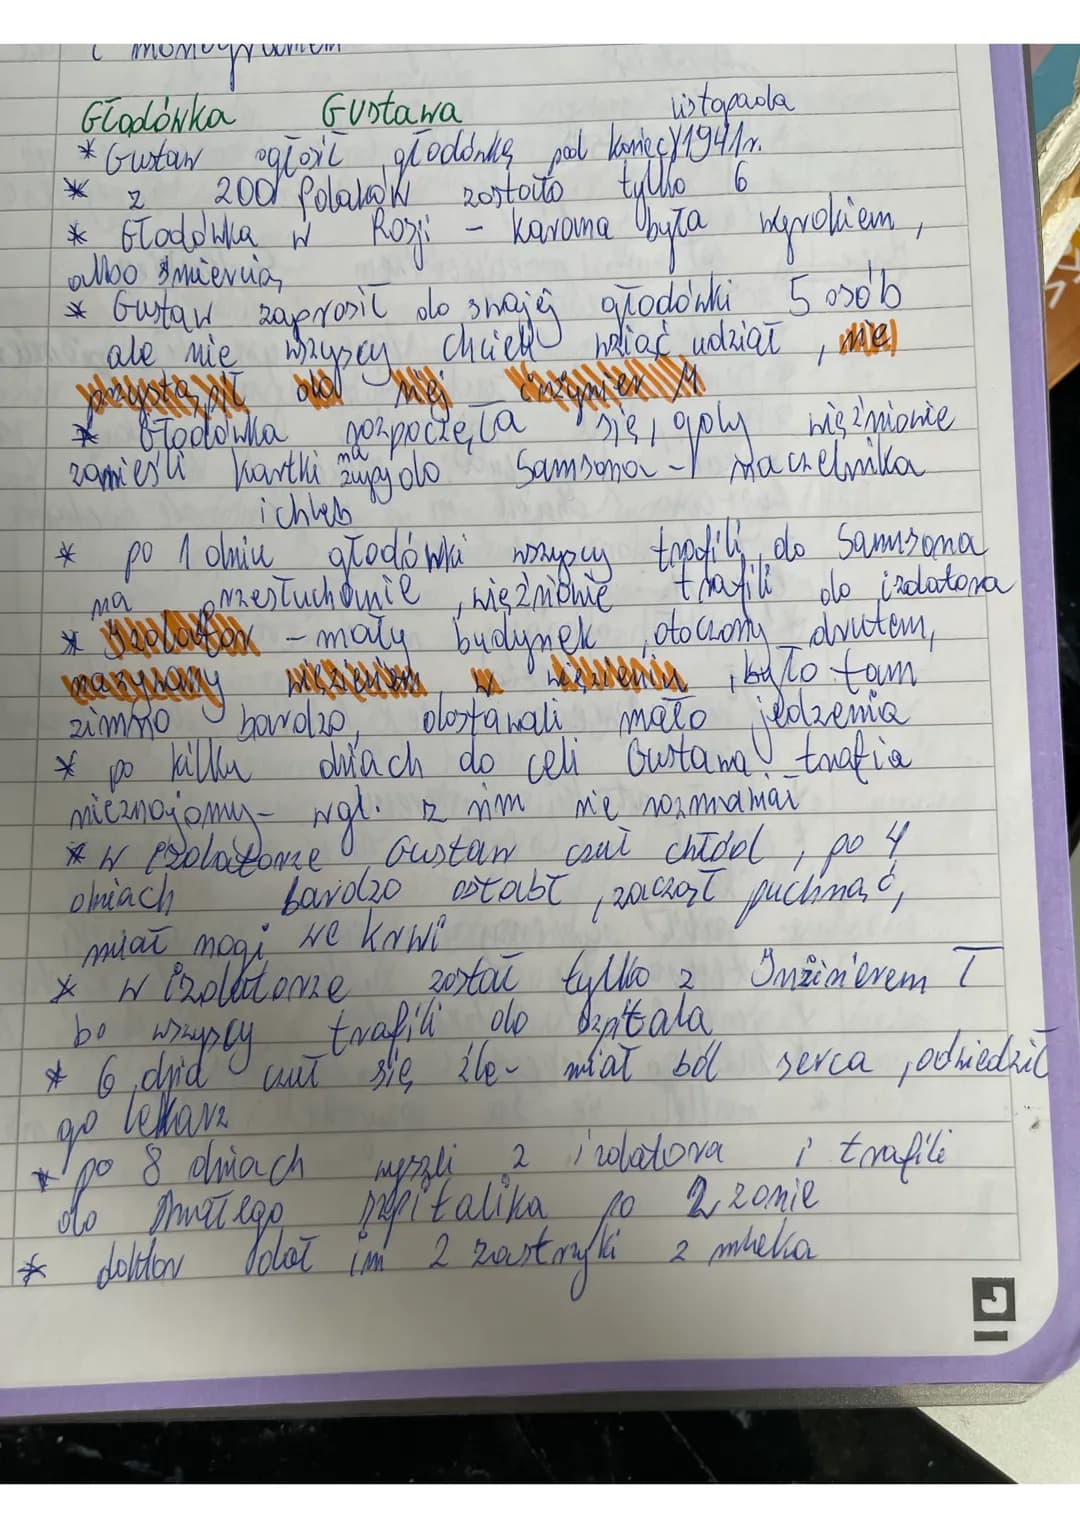 z monogramem
Głodówka Gustawa listopada
* Gustaw ogłosił głodówkę pod koniec 1941r.
* z 200 Polaków zostało tylko 6
* Głodówka w Rosji - karana była wyrokiem,
albo śmiercią
* Gustaw zaprosił do swojej głodówki 5 osób
ale nie wszyscy chcieli wziąć udział, nie
przystąpił do niej inżynier M
* Głodówka rozpoczęła się, gdy więźniowie
zanieśli kartki na zupy do Samsona - naczelnika
i chleb
* po 1 dniu głodówki wszyscy trafili do Samsona
na przesłuchanie, więźniowie trafili do izolatora
* Izolator - mały budynek, otoczony drutem,
nazywany więzieniem w więzieniu, było tam
zimno bardzo, dostawali mało jedzenia
* po kilku dniach do celi Gustawa trafia
nieznajomy - wgl. z nim nie rozmawiał
* w izolatorze Gustaw czuł chłód, po 4
dniach bardzo osłabł, zaczął puchnąć,
miał nogi we krwi
* w izolatorze został tylko z Inżinierem T
bo wszyscy trafili do szpitala
* 6 dnia czuł się źle - miał ból serca, odwiedził
go lekarz
* po 8 dniach wyszli z izolatora i trafili
do małego szpitalika po 2 zonie
* doktor dał im 2 zastrzyki z mleka